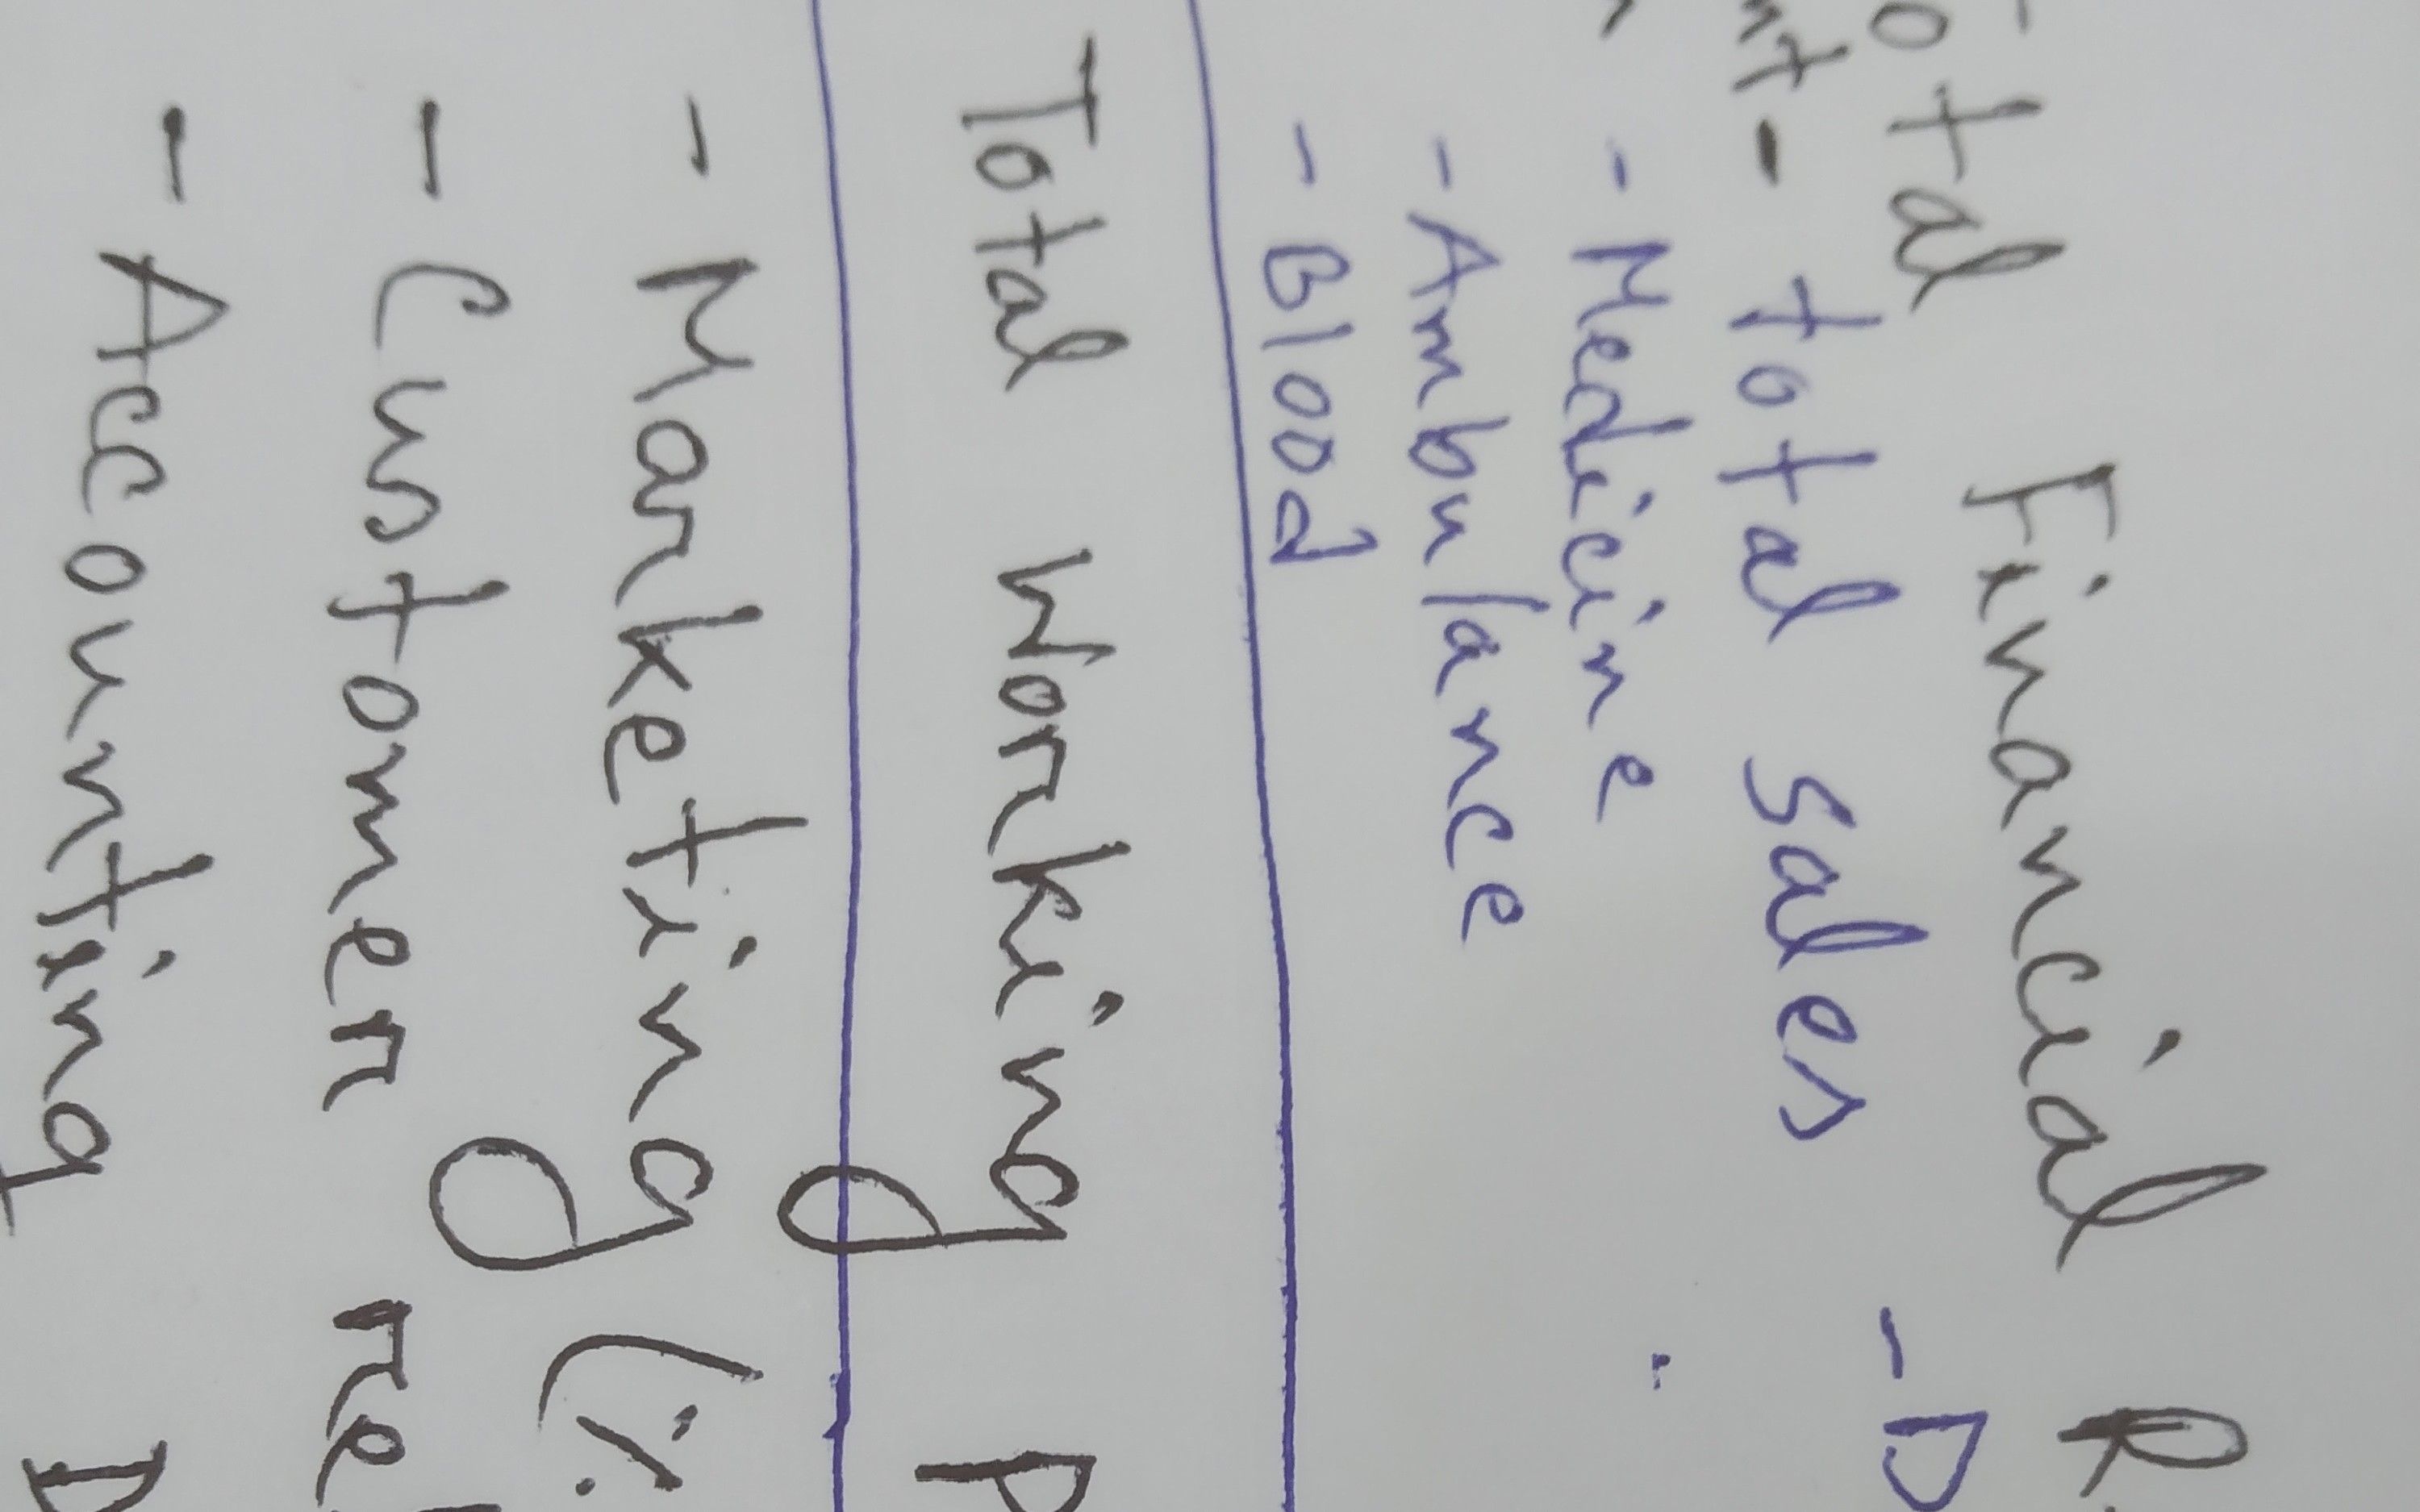 Total Financial R
nt - total sales - D
- Medicine
- Ambulance
- Blood
Total Working P
- Marketing (i.
- Customer rel
- Accounting D